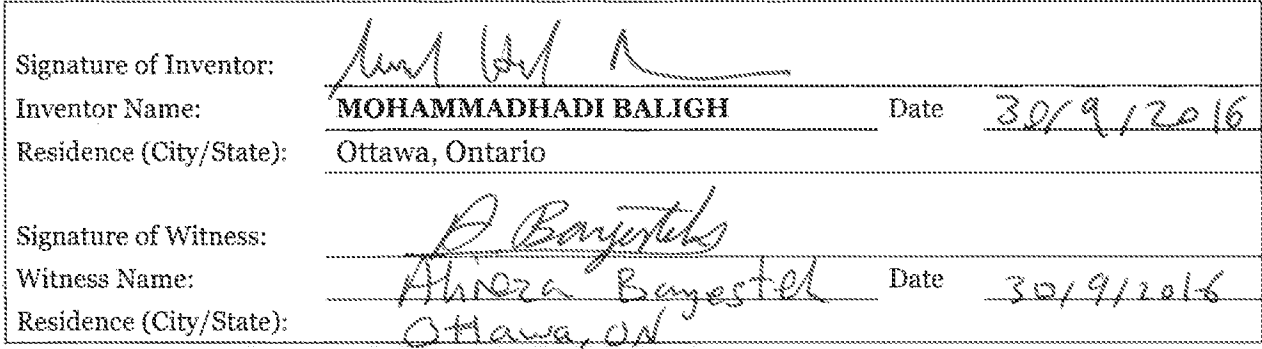 Signature of Inventor:
Inventor Name: MOHAMMADHADI BALIGH Date 30/9/2016
Residence (City/State): Ottawa, Ontario
Signature of Witness:
Witness Name: Alireza Bayesteh Date 30/9/2016
Residence (City/State): Ottawa, ON